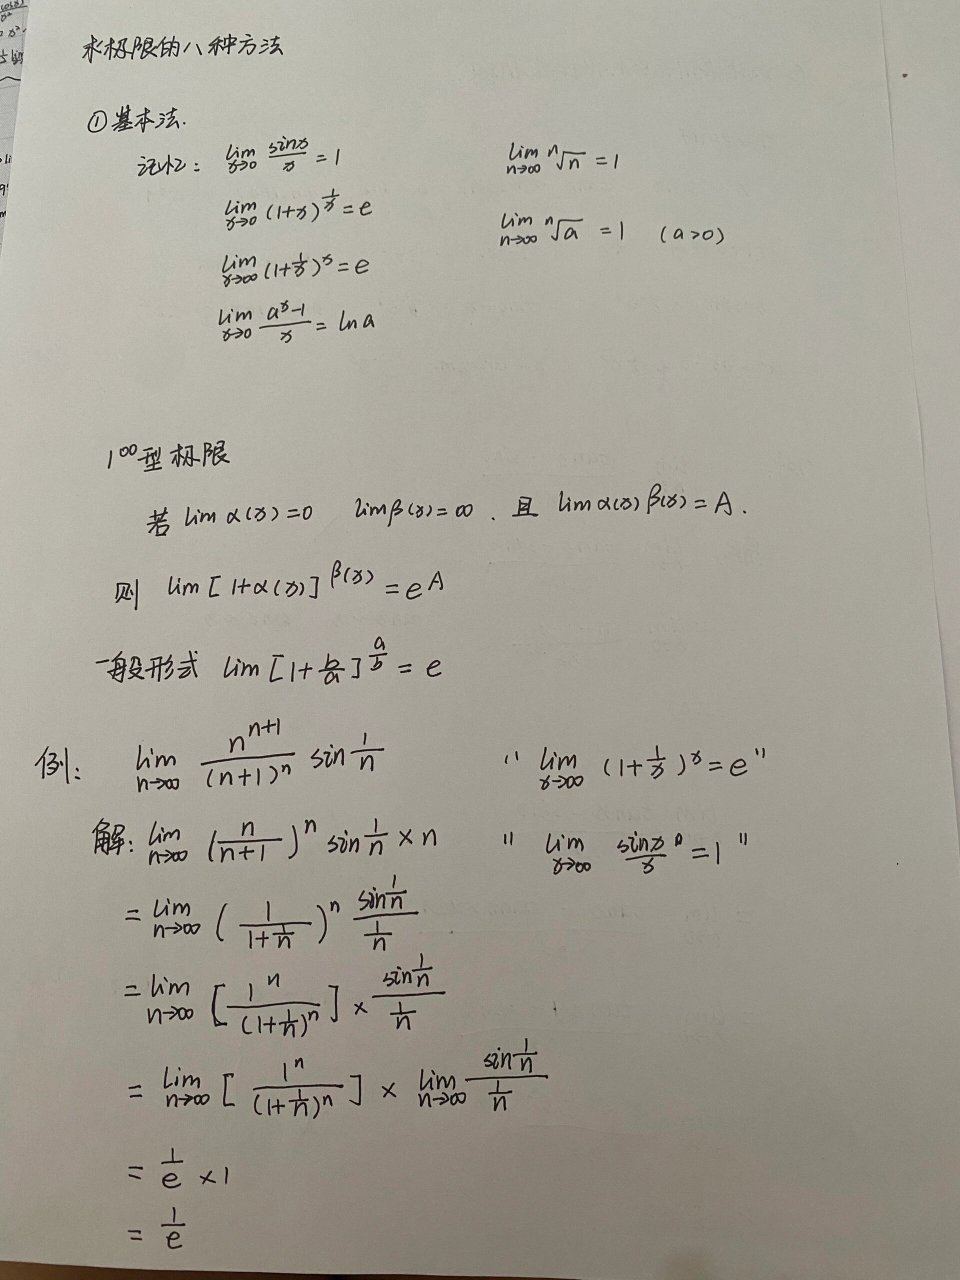 求极限的八种方法
①基本法.
记忆: lim x→0 sinx/x = 1
lim n→∞ ⁿ√n = 1
lim x→0 (1+x)^(1/x) = e
lim n→∞ ⁿ√a = 1 (a>0)
lim x→∞ (1+1/x)^x = e
lim x→0 (a^x-1)/x = lna
1^∞型极限
若 lim α(x)=0 limβ(x)=∞. 且 lim α(x)β(x)=A.
则 lim[1+α(x)]^β(x) = e^A
一般形式 lim[1+b/a]^(a/b) = e
例: lim n→∞ n^(n+1)/(n+1)^n sin 1/n "lim x→∞ (1+1/x)^x=e"
解: lim n→∞ (n/(n+1))^n sin 1/n × n "lim x→∞ sinx/x =1"
= lim n→∞ (1/(1+1/n))^n (sin 1/n)/(1/n)
= lim n→∞ [1^n/(1+1/n)^n] × (sin 1/n)/(1/n)
= lim n→∞ [1^n/(1+1/n)^n] × lim n→∞ (sin 1/n)/(1/n)
= 1/e ×1
= 1/e